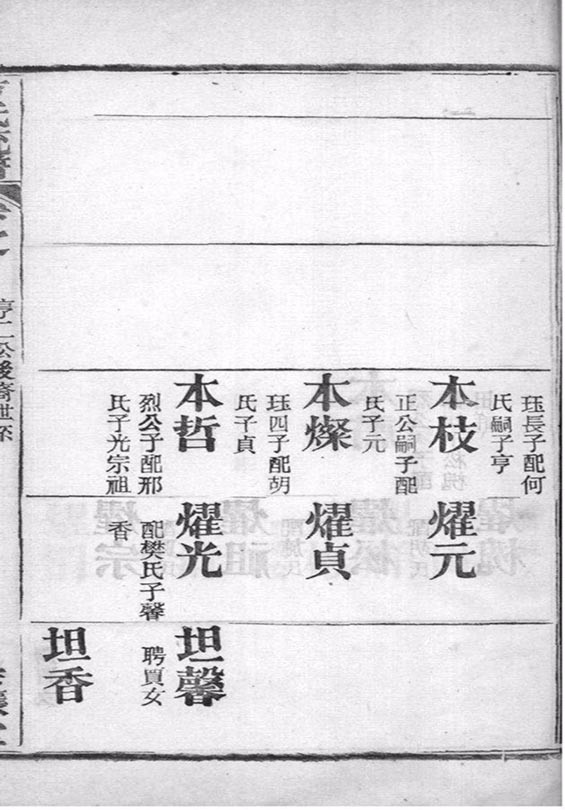 珏長子配何
氏嗣子亨
本枝
正公嗣子配
氏子元
本燦
珏四子配胡
氏子貞
本哲
烈公子配邢
氏子光宗祖
耀元
耀貞
耀光
配樊氏子馨
香
坦馨
聘賈女
坦香
亨二公後裔世系